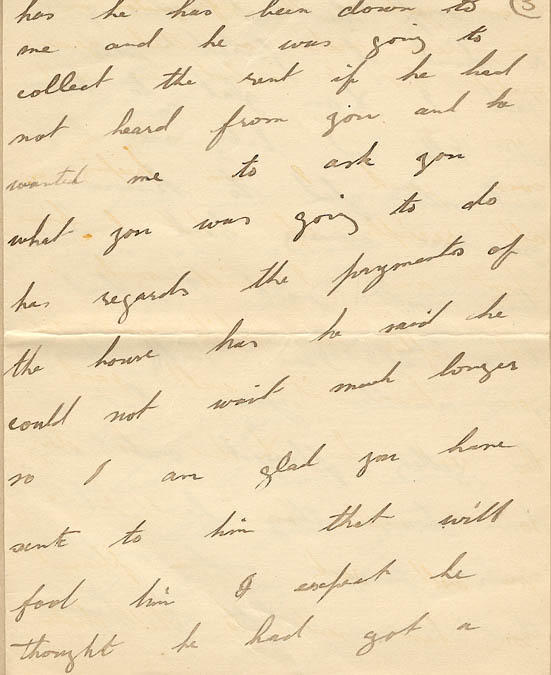 (3
has he has been down to
me and he was going to
collect the rent if he had
not heard from you and he
wanted me to ask you
what you was going to do
has regards the payments of
the house has he said he
could not wait much longer
so I am glad you have
sent to him that will
fool him I expect he
thought he had got a